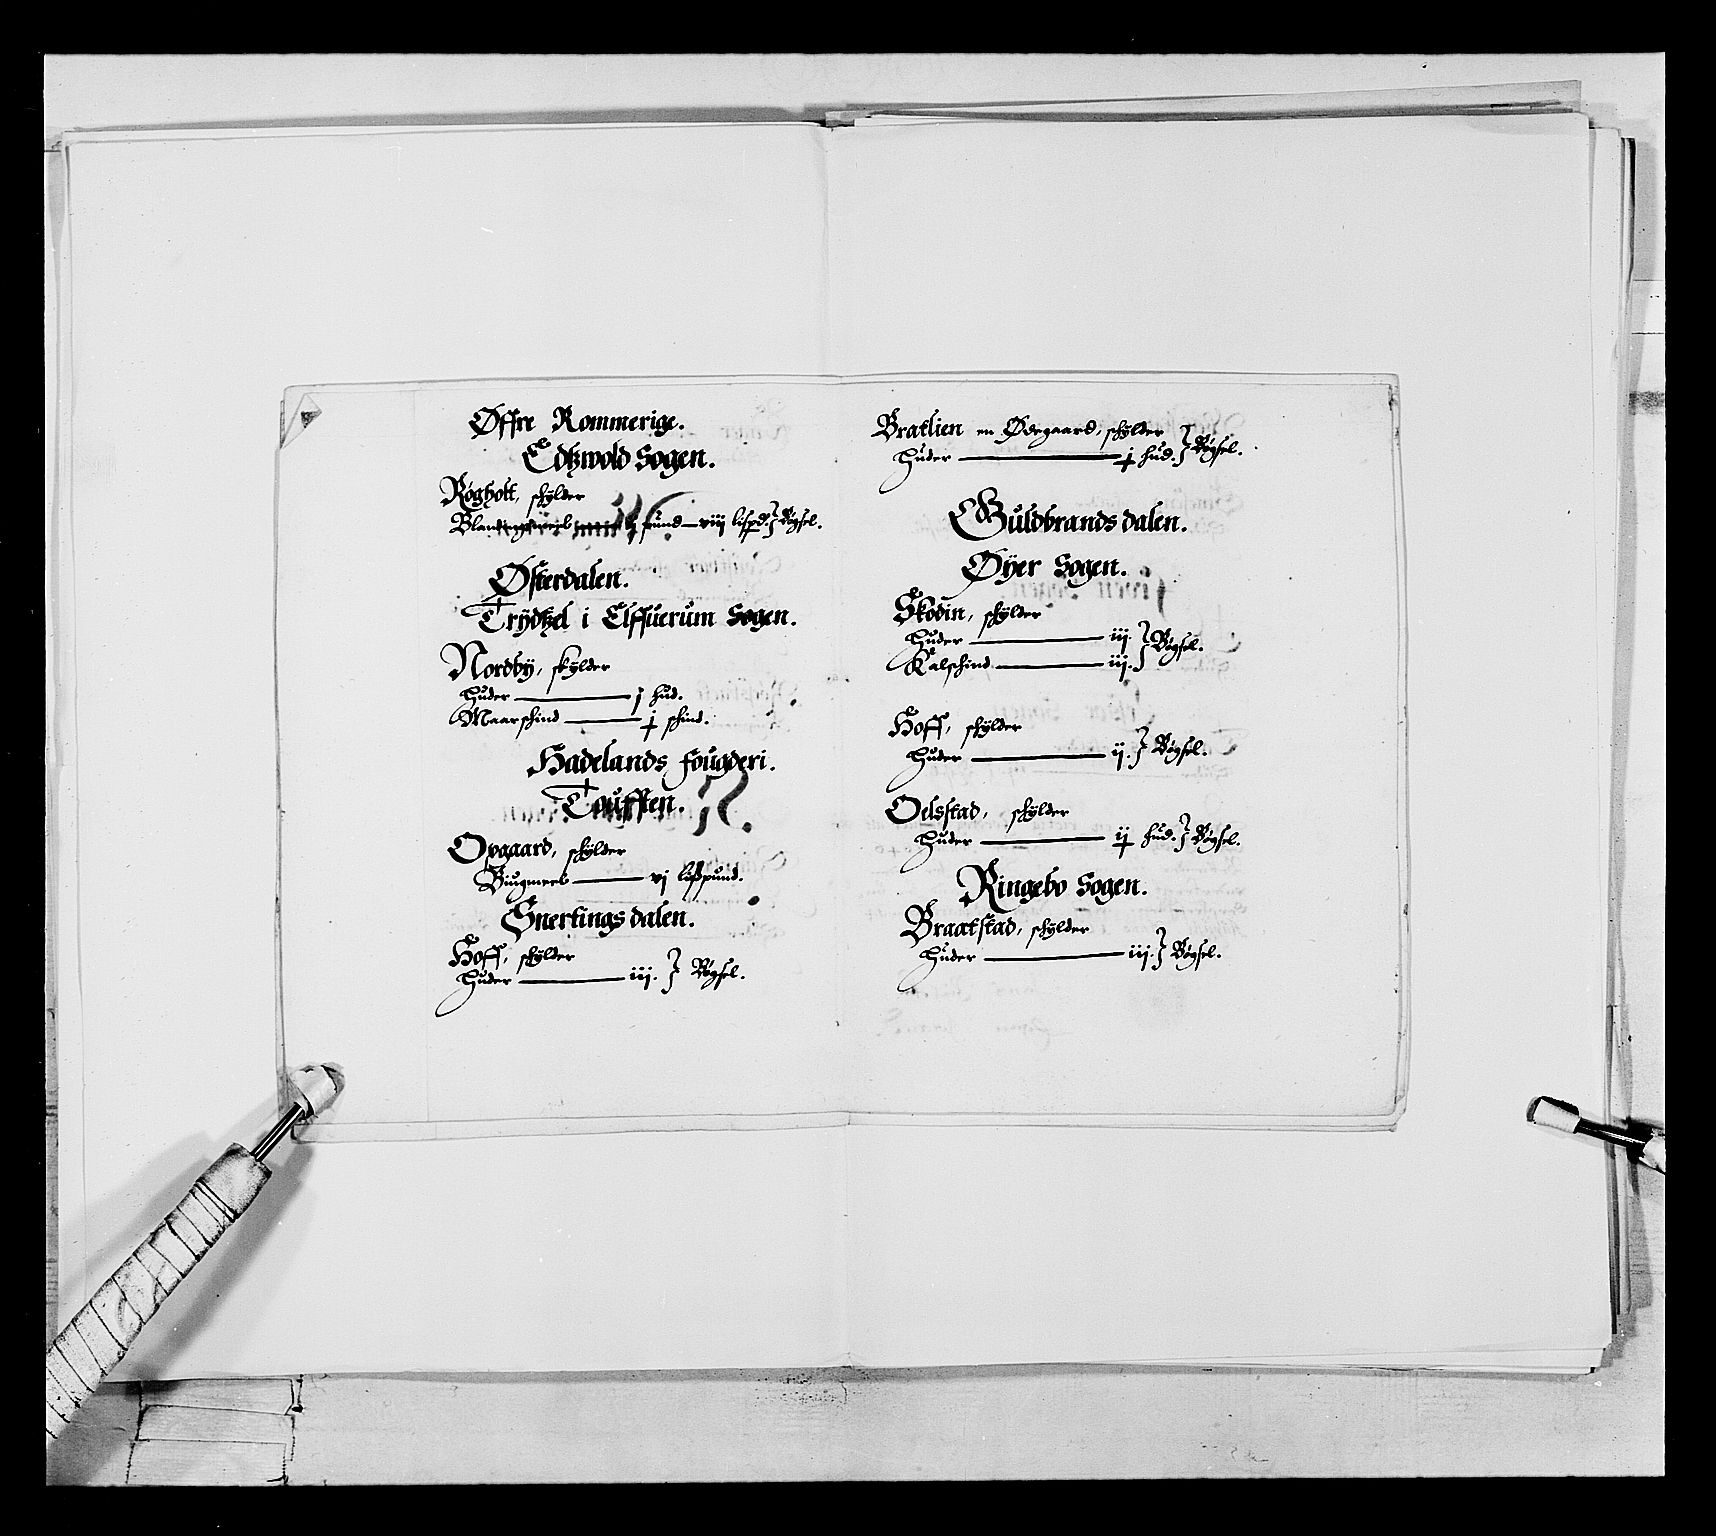 Øffre Rommerige.
Edtzwold Sogen.
Røgholt, skylder
pund — viij lispd. } Bøgsel.
Østerdalen.
Trydtzel i Elffuerum Sogen.
Nordby, skylder
Huder — j hud.
Maarschind — j schind.
Hadelands fougderi.
Toufften.
Opgaard, skylder
Biugmeel — vj lißpund.
Snertings dalen.
Hoff, skylder
Huder — iij. } Bøgsel.
Bratlien en Ødegaard, skylder
Huder — j hud. } Bøgsel.
Guldbrands dalen.
Øyer Sogen.
Skodin, skylder
Huder — iij. } Bøgsel.
Kalschind — iij. }
Hoff, skylder
Huder — ij. } Bøgsel.
Oelsstad, skylder
Huder — ij hud. } Bøgsel.
Ringebo Sogen.
Braatstad, skylder
Huder — iij. } Bøgsel.